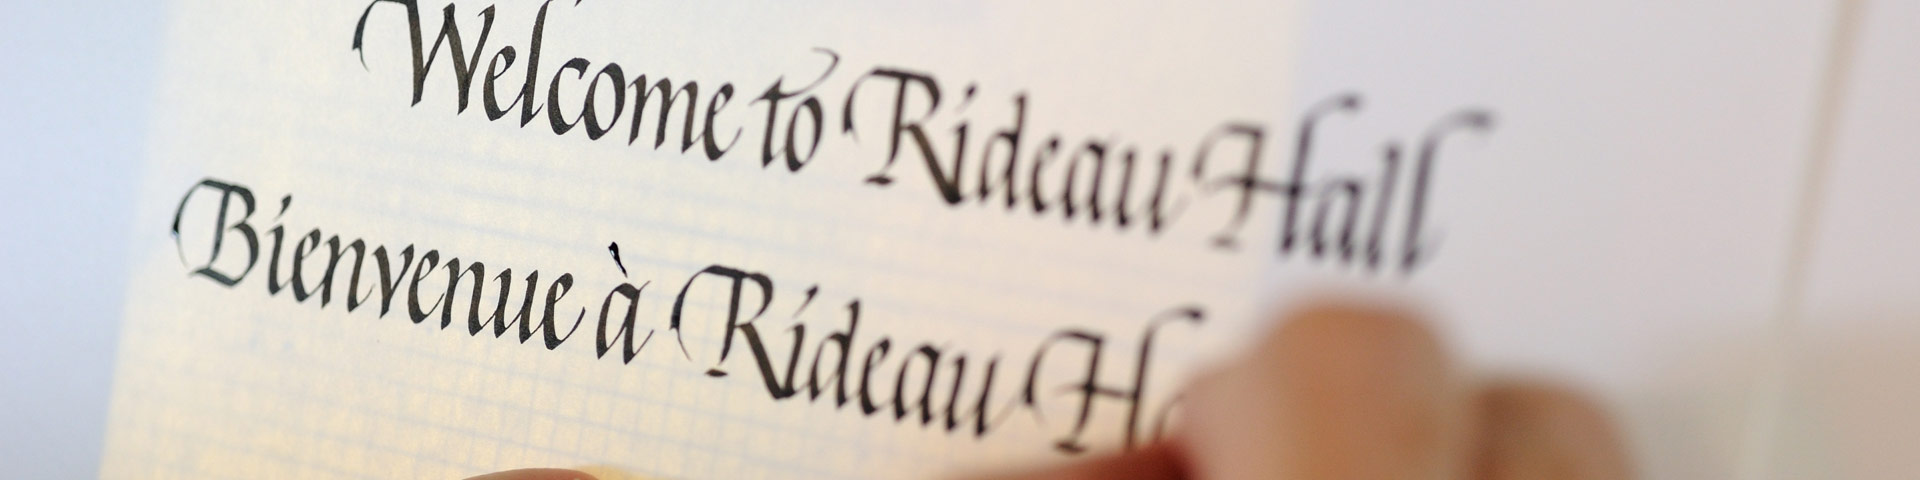 Welcome to Rideau Hall
Bienvenue à Rideau H